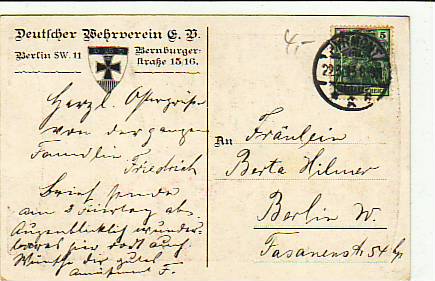 Deutscher Wehrverein E. V.
Berlin SW. 11
Bernburger-
straße 15/16.
4,-
5
Herzl. Ostergrüße
von der ganzen
Familie
Friedrich
Brief sende
am 3 Feiertag ab.
Augenblicklich wunder-
bares
An
Fräulein
Berta Hilmer
Berlin W.
Fasanenstr. 54